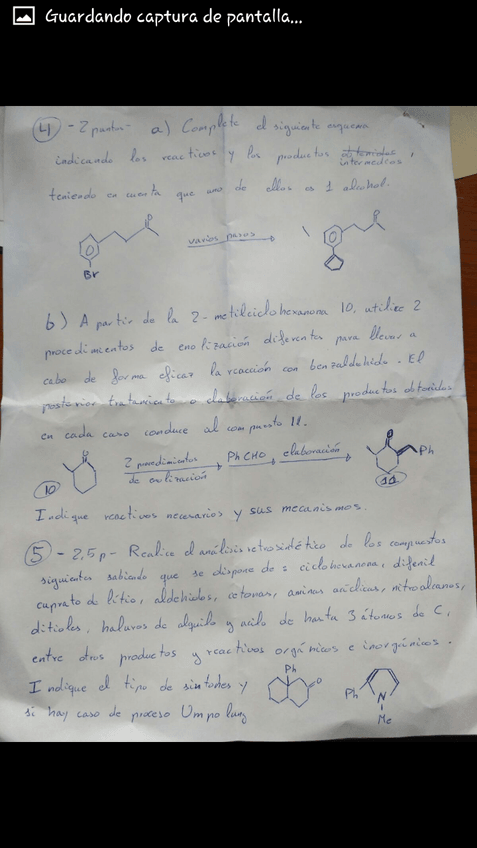 Guardando captura de pantalla...
4 - 2 puntos - a) Complete el siguiente esquema
indicando los reactivos y los productos obtenidos intermedios,
teniendo en cuenta que uno de ellos es 1 alcohol.
O
O
varios pasos
Br
b) A partir de la 2-metilciclohexanona 10, utilice 2
procedimientos de enolización diferentes para llevar a
cabo de forma eficaz la reacción con benzaldehido. El
posterior tratamiento o elaboración de los productos obtenidos
en cada caso conduce al compuesto 11.
O
O
10
2 procedimientos
de enolización
PhCHO
elaboración
Ph
11
Indique reactivos necesarios y sus mecanismos.
5 - 2,5 p - Realice el análisis retrosintético de los compuestos
siguientes sabiendo que se dispone de: ciclohexanona, difenil
cuprato de litio, aldehidos, cetonas, aminas acíclicas, nitroalcanos,
ditioles, haluros de alquilo y acilo de hasta 3 átomos de C,
entre otros productos y reactivos orgánicos e inorgánicos.
Indique el tipo de sintones y
si hay caso de proceso Umpolung
Ph
O
Ph
N
Me